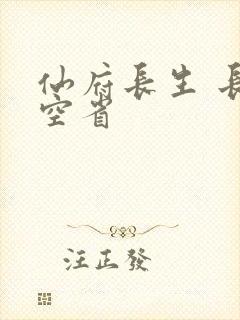 仙府長生 長
空省
汪正發